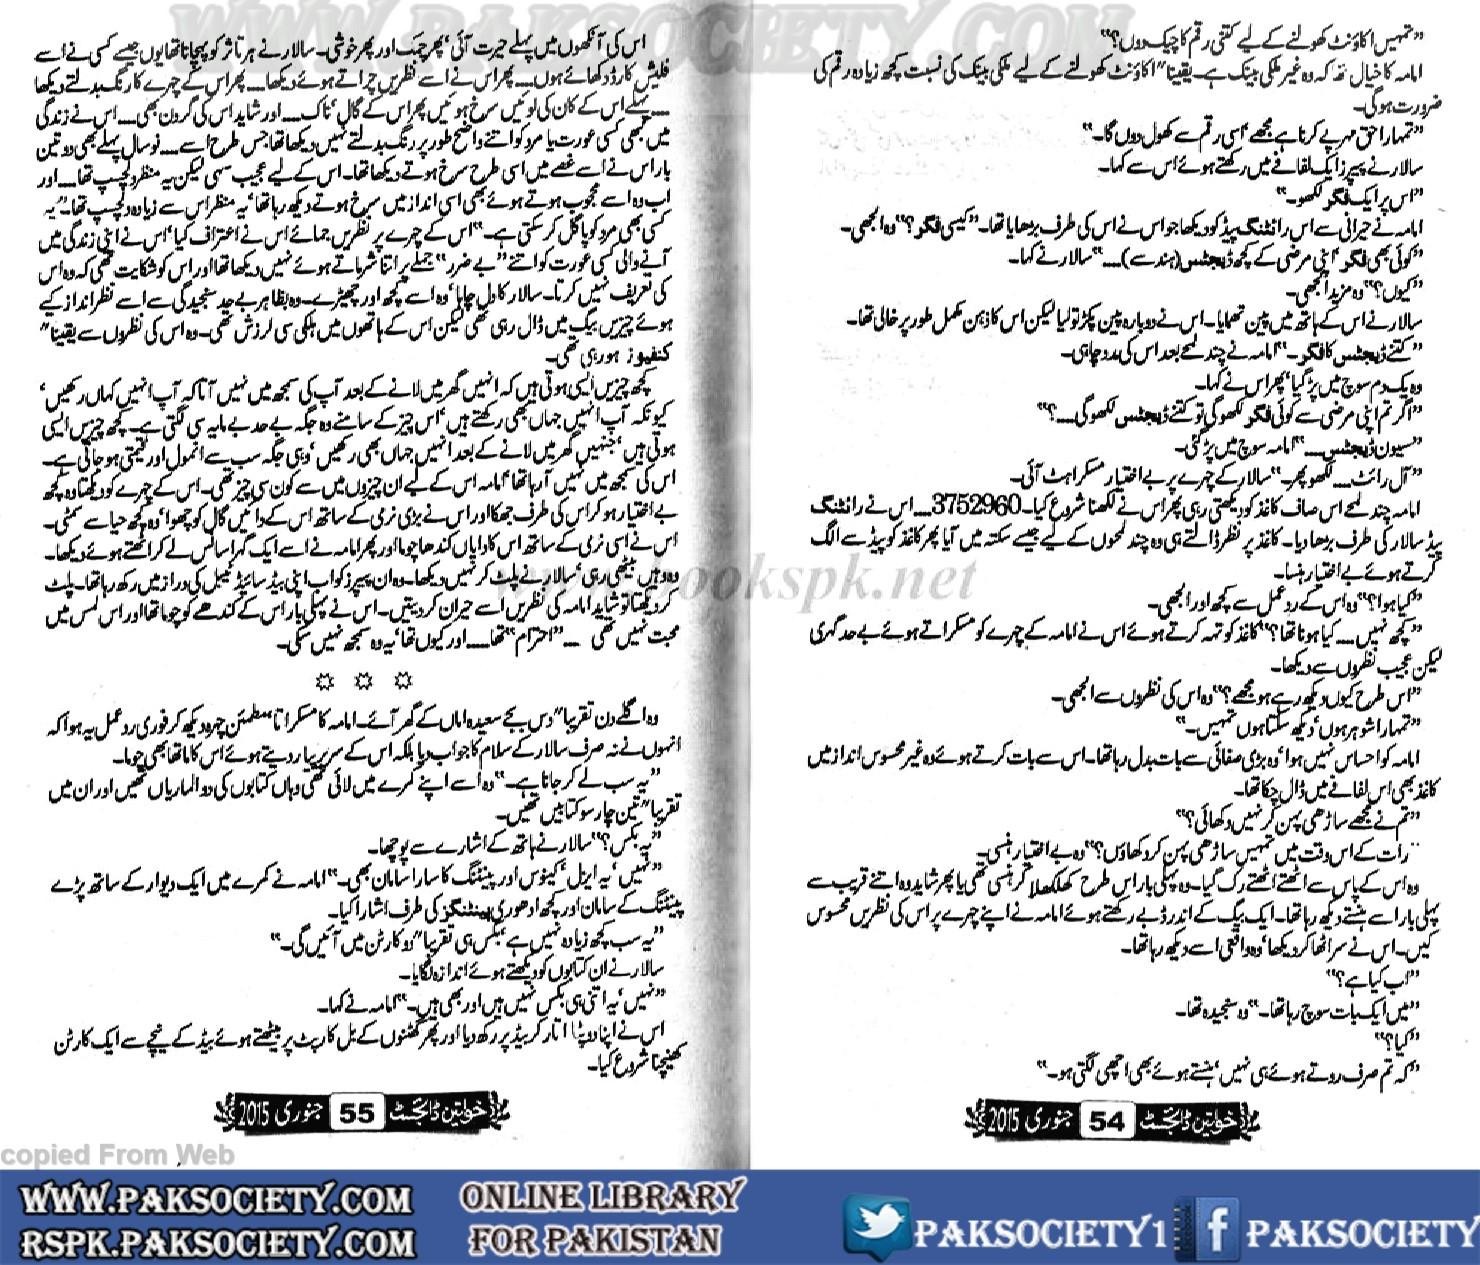 WWW.PAKSOCIETY.COM
”تمہیں اکاؤنٹ کھولنے کے لیے کتنی رقم کا چیک دوں؟“
امامہ کا خیال تھا کہ وہ غیر ملکی بینک ہے۔ یقینا“ اکاؤنٹ کھولنے کے لیے ملکی بینک کی نسبت کچھ زیادہ رقم کی
ضرورت ہوگی۔
”تمہارا حق مہر پے کرنا ہے مجھے‘ اسی رقم سے کھول دوں گا۔“
سالار نے پیپرز ایک لفافے میں رکھتے ہوئے اس سے کہا۔
”اس پر ایک فگر لکھو۔“
امامہ نے حیرانی سے اس رائٹنگ پیڈ کو دیکھا جو اس نے اس کی طرف بڑھایا تھا۔ ”کیسی فگر؟“ وہ الجھی۔
”کوئی بھی فگر‘ اپنی مرضی کے کچھ ڈیجٹس (ہندسے)۔۔۔۔“ سالار نے کہا۔
”کیوں؟“ وہ مزید الجھی۔
سالار نے اس کے ہاتھ میں پین تھمایا۔ اس نے دوبارہ پین پکڑ تو لیا لیکن اس کا ذہن مکمل طور پر خالی تھا۔
”کتنے ڈیجٹس کا فگر۔“ امامہ نے چند لمحے بعد اس کی مدد چاہی۔
وہ یک دم سوچ میں پڑ گیا‘ پھر اس نے کہا۔
”اگر تم اپنی مرضی سے کوئی فگر لکھو گی تو کتنے ڈیجٹس لکھو گی۔۔۔۔؟“
”سیون ڈیجٹس۔۔۔۔“ امامہ سوچ میں پڑ گئی۔
”آل رائٹ۔۔۔۔ لکھو پھر۔“ سالار کے چہرے پر بے اختیار مسکراہٹ آئی۔
امامہ چند لمحے اس صاف کاغذ کو دیکھتی رہی پھر اس نے لکھنا شروع کیا۔ 3752960۔۔۔۔ اس نے رائٹنگ
پیڈ سالار کی طرف بڑھا دیا۔ کاغذ پر نظر ڈالتے ہی وہ چند لمحوں کے لیے جیسے سکتہ میں آیا پھر کاغذ کو پیڈ سے الگ
کرتے ہوئے بے اختیار ہنسا۔
”کیا ہوا؟“ وہ اس کے ردعمل سے کچھ اور الجھی۔
”کچھ نہیں۔۔۔۔ کیا ہونا تھا؟“ کاغذ کو تہہ کرتے ہوئے اس نے امامہ کے چہرے کو مسکراتے ہوئے بے حد گہری
لیکن عجیب نظروں سے دیکھا۔
”اس طرح کیوں دیکھ رہے ہو مجھے؟“ وہ اس کی نظروں سے الجھی۔
”تمہارا شوہر ہوں‘ دیکھ سکتا ہوں تمہیں۔“
امامہ کو احساس نہیں ہوا‘ وہ بڑی صفائی سے بات بدل رہا تھا۔ اس سے بات کرتے ہوئے وہ غیر محسوس انداز میں
کاغذ بھی اس لفافے میں ڈال چکا تھا۔
”تم نے مجھے ساڑھی پہن کر نہیں دکھائی؟“
”رات کے اس وقت میں تمہیں ساڑھی پہن کر دکھاؤں؟“ وہ بے اختیار ہنسی۔
وہ اس کے پاس سے اٹھتے اٹھتے رک گیا۔ وہ پہلی بار اس طرح کھلکھلا کر ہنسی تھی یا پھر شاید وہ اتنے قریب سے
پہلی بار اسے ہنستے دیکھ رہا تھا۔ ایک بیگ کے اندر ڈبے رکھتے ہوئے امامہ نے اپنے چہرے پر اس کی نظریں محسوس
کیں۔ اس نے سر اٹھا کر دیکھا‘ وہ واقعی اسے دیکھ رہا تھا۔
”اب کیا ہے؟“
”میں ایک بات سوچ رہا تھا۔“ وہ سنجیدہ تھا۔
”کیا؟“
”کہ تم صرف روتے ہوئے ہی نہیں‘ ہنستے ہوئے بھی اچھی لگتی ہو۔“
خواتین ڈائجسٹ 54 جنوری 2015
اس کی آنکھوں میں پہلے حیرت آئی‘ پھر چمک اور پھر خوشی۔ سالار نے ہر تاثر کو پہچانا تھا یوں جیسے کسی نے اسے
فلیش کارڈ دکھائے ہوں۔۔۔۔ پھر اس نے اسے نظریں چراتے ہوئے دیکھا۔۔۔۔ پھر اس کے چہرے کا رنگ بدلتے دیکھا
۔۔۔۔ پہلے اس کے کان کی لوئیں سرخ ہوئیں پھر اس کے گال‘ ناک۔۔۔۔ اور شاید اس کی گردن بھی۔۔۔۔ اس نے زندگی
میں کبھی کسی عورت یا مرد کو اتنے واضح طور پر رنگ بدلتے نہیں دیکھا تھا جس طرح اسے۔۔۔۔ نو سال پہلے بھی دو تین
بار اس نے اسے غصے میں اسی طرح سرخ ہوتے دیکھا تھا۔ اس کے لیے عجیب سہی لیکن یہ منظر دلچسپ تھا۔۔۔۔ اور
اب وہ اسے محجوب ہوتے ہوئے بھی اسی انداز میں سرخ ہوتے دیکھ رہا تھا‘ یہ منظر اس سے زیادہ دلچسپ تھا۔ ”یہ
کسی بھی مرد کو پاگل کر سکتی ہے۔“ اس کے چہرے پر نظریں جمائے اس نے اعتراف کیا‘ اس نے اپنی زندگی میں
آنے والی کسی عورت کو اتنے ”بے ضرر“ جملے پر اتنا شرماتے ہوئے نہیں دیکھا تھا اور اس کو شکایت تھی کہ وہ اس
کی تعریف نہیں کرتا۔ سالار کا دل چاہا‘ وہ اسے کچھ اور چھیڑے۔ وہ بظاہر بے حد سنجیدگی سے اسے نظرانداز کیے
ہوئے چیزیں بیگ میں ڈال رہی تھی لیکن اس کے ہاتھوں میں ہلکی سی لرزش تھی۔ وہ اس کی نظروں سے یقینا“
کنفیوز ہو رہی تھی۔
کچھ چیزیں ایسی ہوتی ہیں کہ انہیں گھر میں لانے کے بعد آپ کی سمجھ میں نہیں آتا کہ آپ انہیں کہاں رکھیں‘
کیونکہ آپ انہیں جہاں بھی رکھتے ہیں‘ اس چیز کے سامنے وہ جگہ بے حد بے مایہ سی لگتی ہے۔ کچھ چیزیں ایسی
ہوتی ہیں‘ جنہیں گھر میں لانے کے بعد انہیں جہاں بھی رکھیں‘ وہی جگہ سب سے انمول اور قیمتی ہو جاتی ہے۔
اس کی سمجھ میں نہیں آرہا تھا‘ امامہ اس کے لیے ان چیزوں میں سے کون سی چیز تھی۔ اس کے چہرے کو دیکھتا وہ کچھ
بے اختیار ہو کر اس کی طرف جھکا اور اس نے بڑی نرمی کے ساتھ اس کے دائیں گال کو چھوا‘ وہ کچھ حیا سے سمٹی۔
اس نے اسی نرمی کے ساتھ اس کا دایاں کندھا چوما اور پھر امامہ نے اسے ایک گہرا سانس لے کر اٹھتے ہوئے دیکھا۔
وہ وہیں بیٹھی رہی‘ سالار نے پلٹ کر نہیں دیکھا۔ وہ ان پیپرز کو اب اپنی بیڈ سائیڈ ٹیبل کی دراز میں رکھ رہا تھا۔ پلٹ
کر دیکھتا تو شاید امامہ کی نظریں اسے حیران کر دیتیں۔ اس نے پہلی بار اس کے کندھے کو چوما تھا اور اس لمس میں
محبت نہیں تھی ۔۔۔ ”احترام“ تھا۔۔۔۔ اور کیوں تھا‘ یہ وہ سمجھ نہیں سکی۔
www.bookspk.net
وہ اگلے دن تقریبا“ دس بجے سعیدہ اماں کے گھر آئے۔ امامہ کا مسکراتا‘ مطمئن چہرہ دیکھ کر فوری ردعمل یہ ہوا کہ
انہوں نے نہ صرف سالار کے سلام کا جواب دیا بلکہ اس کے سر پر پیار دیتے ہوئے اس کا ماتھا بھی چوما۔
”یہ سب لے کر جانا ہے۔“ وہ اسے اپنے کمرے میں لائی تھی وہاں کتابوں کی دو الماریاں تھیں اور ان میں
تقریبا“ تین چار سو کتابیں تھیں۔
”یہ بکس؟“ سالار نے ہاتھ کے اشارے سے پوچھا۔
”نہیں‘ یہ ایزل‘ کینوس اور پینٹنگ کا سارا سامان بھی۔“ امامہ نے کمرے میں ایک دیوار کے ساتھ پڑے
پینٹنگ کے سامان اور کچھ ادھوری پینٹنگز کی طرف اشارا کیا۔
”یہ سب کچھ زیادہ نہیں ہے‘ بکس ہی تقریبا“ دو کارٹن میں آئیں گی۔“
سالار نے ان کتابوں کو دیکھتے ہوئے اندازہ لگایا۔
”نہیں‘ یہ اتنی ہی بکس نہیں ہیں اور بھی ہیں۔“ امامہ نے کہا۔
اس نے اپنا دوپٹا اتار کر بیڈ پر رکھ دیا اور پھر گھٹنوں کے بل کارپٹ پر بیٹھتے ہوئے بیڈ کے نیچے سے ایک کارٹن
کھینچنا شروع کیا۔
خواتین ڈائجسٹ 55 جنوری 2015
copied From Web
WWW.PAKSOCIETY.COM
RSPK.PAKSOCIETY.COM
ONLINE LIBRARY
FOR PAKISTAN
PAKSOCIETY1
PAKSOCIETY